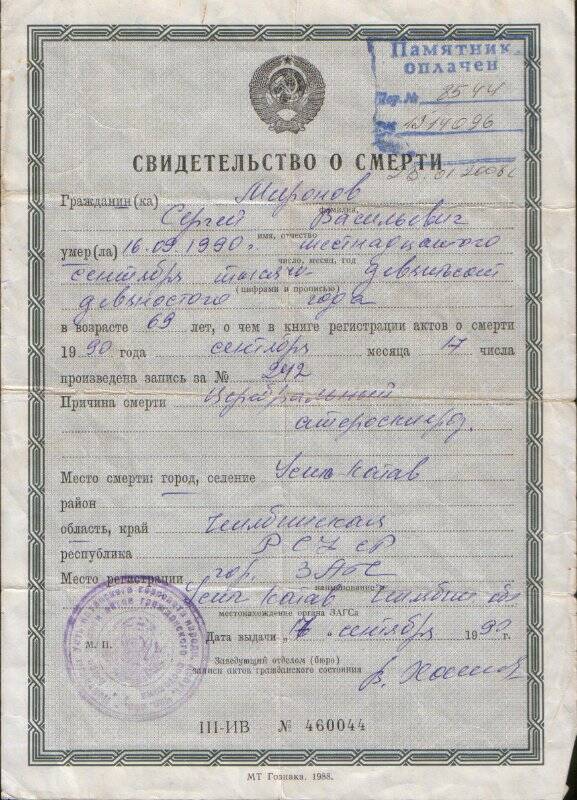 Памятник
оплачен
Пор.№ 8544
1214096
25.01.2008г.
СВИДЕТЕЛЬСТВО О СМЕРТИ
Гражданин(ка) Миронов
фамилия,
Сергей Васильевич
имя, отчество
умер(ла) 16.09.1990г. шестнадцатого
число, месяц, год
сентября тысяча девятьсот
(цифрами и прописью)
девяностого года
в возрасте 69 лет, о чем в книге регистрации актов о смерти
1990 года сентября месяца 17 числа
произведена запись за № 292
Причина смерти Церебральный
атеросклероз.
Место смерти: город, селение Усть Катав
район
область, край Челябинская
республика РСФСР
Место регистрации гор. ЗАГС
наименование
Усть Катав Челябинск
местонахождение органа ЗАГСа
Дата выдачи „17" сентября 1990 г.
М. П.
Заведующий отделом (бюро)
записи актов гражданского состояния
III-ИВ № 460044
МТ Гознака. 1988.